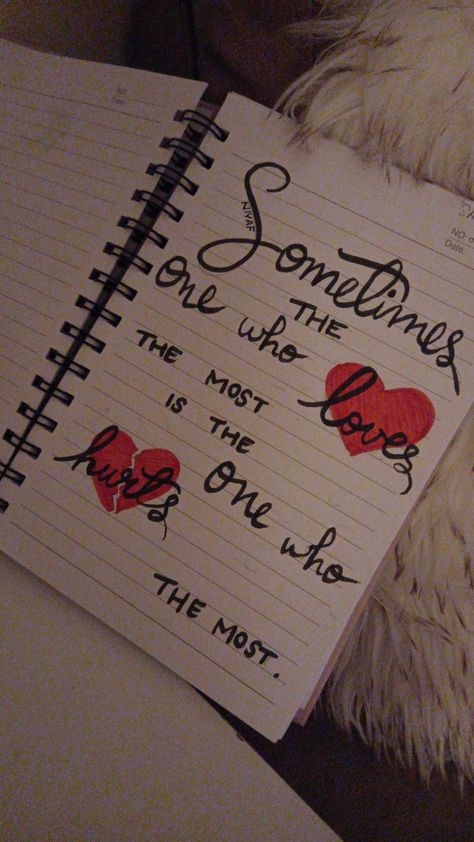 NO
Date
NO.
Date.
Sometimes
NIYAF
THE
one who loves
THE MOST
IS THE
one who
hurts
THE MOST.